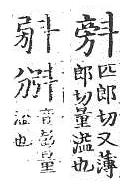 㪵
匹郎切又薄
郎切量溢也
音彭量
溢也